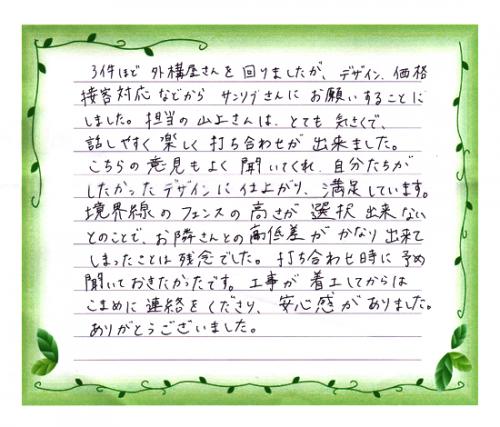 3件ほど 外構屋さんを 回りましたが、デザイン、価格
接客対応 などから サンリブさんに お願いすることに
しました。担当の 山上さんは、とても 気さくで、
話しやすく 楽しく 打ち合わせが 出来ました。
こちらの 意見も よく 聞いてくれ、自分たちが
したかった デザインに 仕上がり、満足しています。
境界線の フェンスの 高さが 選択 出来ない
とのことで、お隣さんとの 高低差が かなり 出来て
しまったことは 残念でした。打ち合わせ時に 予め
聞いておきたかったです。工事が 着工してからは
こまめに 連絡を くださり、安心感が ありました。
ありがとうございました。